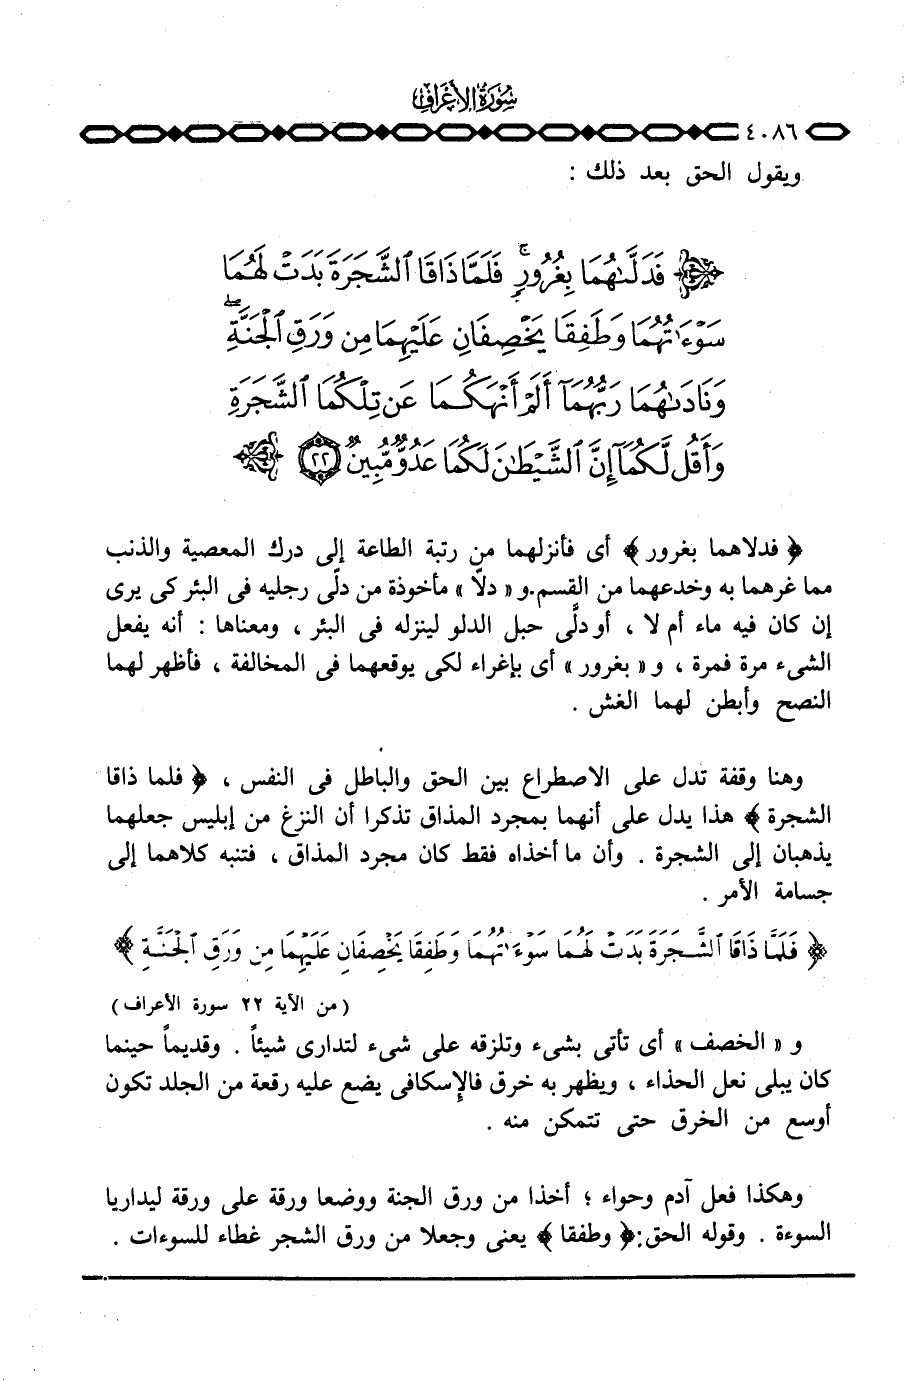 سُورَةُ الأَعْرَافِ
٤٠٨٦
ويقول الحق بعد ذلك :
﴿ فَدَلَّىٰهُمَا بِغُرُورٍ ۚ فَلَمَّا ذَاقَا ٱلشَّجَرَةَ بَدَتْ لَهُمَا
سَوْءَٰتُهُمَا وَطَفِقَا يَخْصِفَانِ عَلَيْهِمَا مِن وَرَقِ ٱلْجَنَّةِ ۖ
وَنَادَىٰهُمَا رَبُّهُمَآ أَلَمْ أَنْهَكُمَا عَن تِلْكُمَا ٱلشَّجَرَةِ
وَأَقُل لَّكُمَآ إِنَّ ٱلشَّيْطَٰنَ لَكُمَا عَدُوٌّ مُّبِينٌ ٢٢ ﴾
﴿ فدلاهما بغرور ﴾ أى فأنزلهما من رتبة الطاعة إلى درك المعصية والذنب
مما غرهما به وخدعهما من القسم.و « دلّا » مأخوذة من دلّى رجليه فى البئر كى يرى
إن كان فيه ماء أم لا ، أو دلَّى حبل الدلو لينزله فى البئر ، ومعناها : أنه يفعل
الشىء مرة فمرة ، و « بغرور » أى بإغراء لكى يوقعهما فى المخالفة ، فأظهر لهما
النصح وأبطن لهما الغش .
وهنا وقفة تدل على الاصطراع بين الحق والباطل فى النفس ، ﴿ فلما ذاقا
الشجرة ﴾ هذا يدل على أنهما بمجرد المذاق تذكرا أن النزغ من إبليس جعلهما
يذهبان إلى الشجرة . وأن ما أخذاه فقط كان مجرد المذاق ، فتنبه كلاهما إلى
جسامة الأمر .
﴿ فَلَمَّا ذَاقَا ٱلشَّجَرَةَ بَدَتْ لَهُمَا سَوْءَٰتُهُمَا وَطَفِقَا يَخْصِفَانِ عَلَيْهِمَا مِن وَرَقِ ٱلْجَنَّةِ ﴾
( من الآية ٢٢ سورة الأعراف )
و « الخصف » أى تأتى بشىء وتلزقه على شىء لتدارى شيئاً . وقديماً حينما
كان يبلى نعل الحذاء ، ويظهر به خرق فالإسكافى يضع عليه رقعة من الجلد تكون
أوسع من الخرق حتى تتمكن منه .
وهكذا فعل آدم وحواء ؛ أخذا من ورق الجنة ووضعا ورقة على ورقة ليداريا
السوءة . وقوله الحق:﴿ وطفقا ﴾ يعنى وجعلا من ورق الشجر غطاء للسوءات .